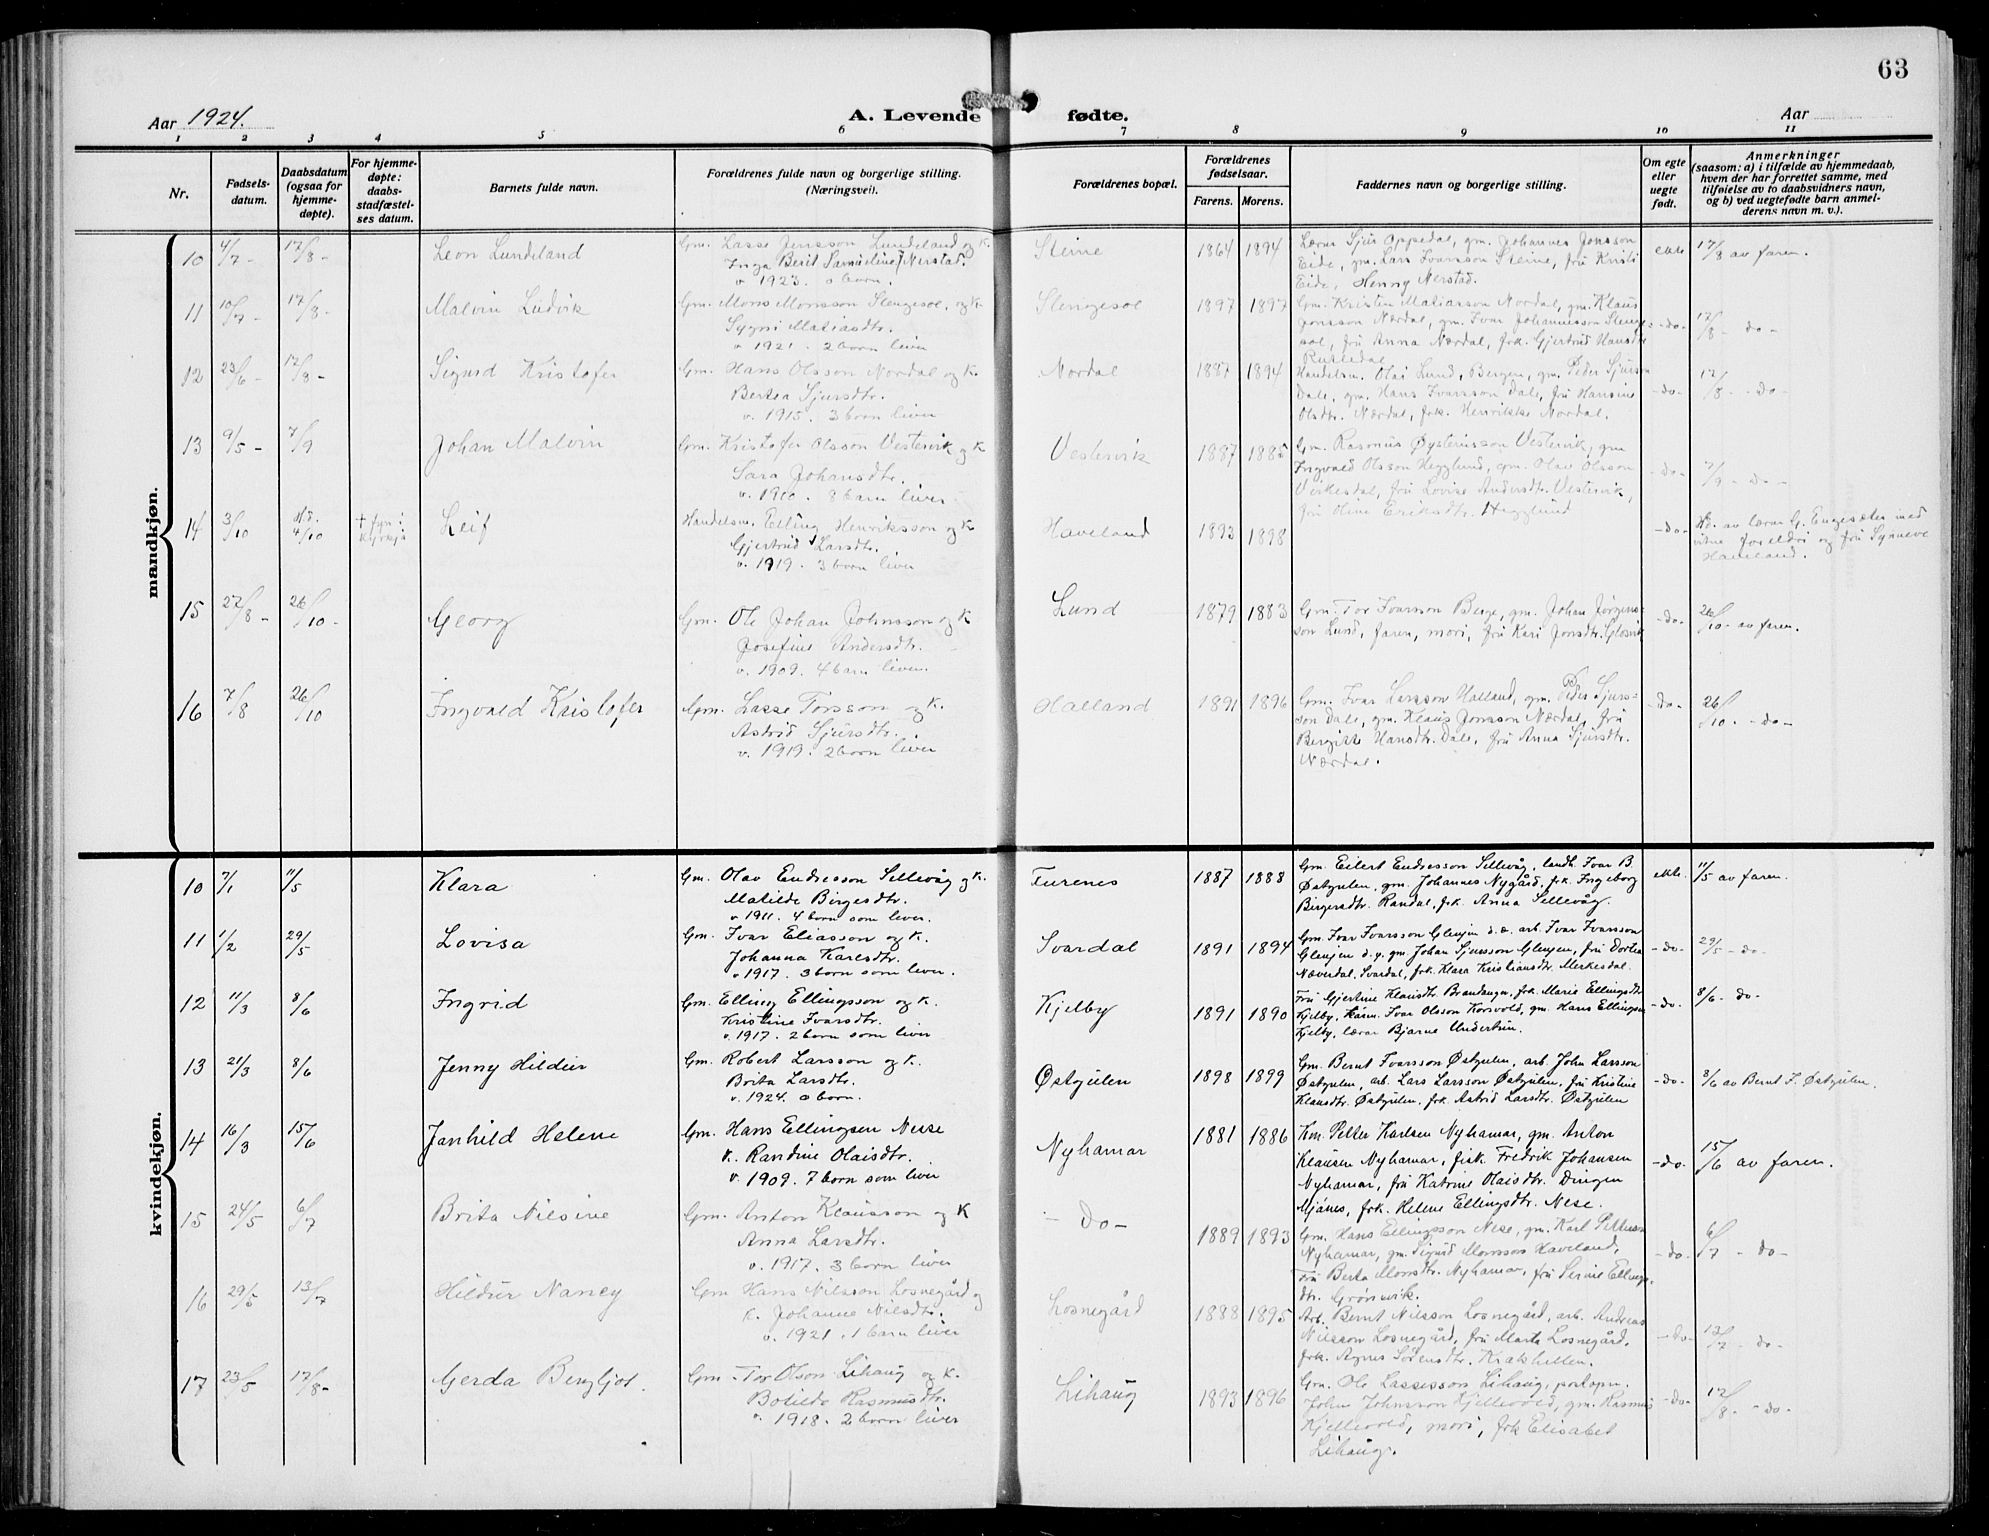 63
Aar 1924.
A. Levende fødte.
Aar
1 2 3 4 5 6 7 8 9 10 11
Nr.
Fødsels-
datum.
Daabsdatum
(ogsaa for
hjemme-
døpte).
For hjemme-
døpte:
daabs-
stadfæstel-
ses datum.
Barnets fulde navn.
Forældrenes fulde navn og borgerlige stilling.
(Næringsvei).
Forældrenes bopæl.
Forældrenes
fødselsaar.
Farens. Morens.
Faddernes navn og borgerlige stilling.
Om egte
eller
uegte
født.
Anmerkninger
(saasom: a) i tilfælde av hjemmedaab,
hvem der har forrettet samme, med
tilføielse av to daabsvidners navn,
og b) ved uegtefødte barn anmel-
derens navn m. v.).
mandkjøn.
10 4/7 - 17/8 - Leon Lundeland
Gm. Lasse Jensson Lundeland og k.
Inga Berit Samueline Nerstad.
v 1923. 0 born.
Steine 1864 1894
Lærar Sjur Oppedal, gm. Johannes Jonsson
Eide, gm. Lars Ivarsson Steine, frü Kristi
Eide, Henny Nerstad.
ekte 17/8 av faren.
11 10/7 - 17/8 - Malvin Ludvik
Gm. Mons Monsson Slengesol, og k
Sygni Matiasdtr.
v 1921. 2 born liver
Slengesol 1897 1897
Gm. Kristen Matiasson Nordal, gm. Klaus
Jonsson Nærdal, gm. Ivar Johannesson Slenge-
sol, frü Anna Nærdal, frk. Gjertrud Hansdtr
Rutledal
-do- 17/8 - do -
12 23/6 - 17/8 - Sigurd Kristofer
Gm. Hans Olsson Nordal og k.
Bertea Sjursdtr.
v. 1915. 3 born liver
Nordal 1887 1894
Handelsm. Olai Lund, Bergen, gm. Peder Sjursson
Dale, gm. Hans Ivarsson Dale, frü Hansine
Olsdtr. Nærdal, frk. Henrikke Nordal.
-do- 17/8 - do -
13 9/5 - 7/9 Johan Malvin
Gm. Kristofer Olsson Vestervik og k
Sara Johansdtr.
v. 1910. 8 barn liver
Vestervik 1887 1885
Gm. Rasmus Øysteinsson Vestervik, gm
Ingvald Olsson Hegglund, gm. Olav Olsson
Virkesdal, frü Lovise Andersdtr. Vestervik,
frü Oline Eriksdtr. Hegglund
-do- 7/9 - do -
14 3/10 Hd. 4/10 + fyri kjyrkja Leif
Handelsm. Elling Henriksson og k
Gjertrud Larsdtr.
v. 1919. 3 born liver
Haveland 1893 1898
-do- Hd. av lærar G. Engesæter med
vitne foreldri og frü Synneve
Haveland.
15 27/8 - 26/10 - Georg
Gm. Ole Johan Johnsson og k
Josefine Andersdtr.
v. 1909. 4 barn liver.
Lund 1879 1883
Gm. Tor Ivarsson Berge, gm. Johan Jørgens-
son Lund, faren, mori, frü Kari Jonsdtr. Glosvik
-do- 26/10 - av faren.
16 7/8 26/10 Ingvald Kristofer
Gm. Lasse Torsson og k.
Astrid Sjursdtr.
v. 1919. 2 born liver
Halland 1891 1896
Gm. Ivar Larsson Halland, gm. Peder Sjurs-
son Dale, gm. Klaus Jonsson Nærdal, frü
Bergitte Hansdtr. Dale, frü Anna Sjursdtr.
Nærdal.
-do- 26/10 - - do -
kvindekjøn.
10 7/1 11/5 Klara
Gm. Olav Endresson Sellevåg og k.
Matilde Birgesdtr.
v 1911. 4 born som liver.
Furenes 1887 1888
Gm. Eilert Endresson Sellevåg, landh. Ivar B.
Østgulen, gm. Johannes Nygård, frk. Ingeborg
Birgersdtr. Randal, frk. Anna Sellevåg.
ekte. 11/5 av faren.
11 1/2 29/5 Lovisa
Gm. Ivar Eliasson og k.
Johanna Karlsdtr.
v 1917. 3 born som liver.
Svardal 1891 1894
Gm. Ivar Ivarsson Glenjen d.e. arb. Ivar Ivarsson
Glenjen d.y. gm. Johan Sjursson Glenjen, frü Dortea
Næverdal, Svardal, frk. Klara Kristiansdtr. Merkesdal.
-do- 29/5 - do -
12 11/3 8/6 Ingrid
Gm. Elling Ellingsson og k.
Kristine Ivarsdtr.
v. 1917. 2 born som liver
Kjelby 1891 1890
Frü Gjertine Klausdtr. Brandanger, frk. Marie Ellingsdtr
Kjelby, Ivar Olsson Korsvold, gm. Hans Ellingsen
Kjelby, lærar Bjarne Undertun.
-do- 8/6 - do -
13 21/3 8/6 Jenny Hildur
Gm. Robert Larsson og k.
Brita Larsdtr.
v. 1924. 0 born.
Østgulen 1898 1899
Gm. Bernt Ivarsson Østgulen, arb. John Larsson
Østgulen, arb. Lars Larsson Østgulen, frü Kristine
Klausdtr. Østgulen, frk. Astrid Larsdtr. Østgulen
-do- 8/6 av Bernt I. Østgulen.
14 16/3 15/6 Janhild Helene
Gm. Hans Ellingsen Nese
k. Randine Olaisdtr.
v. 1909. 7 born som liver
Nyhamar 1881 1886
Km. Petter Karlsen Nyhamar, gm. Anton
Klausen Nyhamar, fisk. Fredrik Johansen
Nyhamar, frü Katrine Olaisdtr. Dingen
Mjånes, frk. Helene Ellingsdtr. Nese.
-do- 15/6 av faren.
15 24/5 6/7 Brita Nilsine
Gm. Anton Klausson og k
Anna Larsdtr.
v. 1917. 3 born liver
- do - 1889 1893
Gm. Hans Ellingsson Nese, gm. Karl Petterson
Nyhamar, gm. Sigurd Monsson Haveland,
Frü Berta Monsdtr. Nyhamar, frü Serine Ellings-
dtr. Grønevik.
-do- 6/7 - do -
16 29/5 13/7 Hildur Nancy
Gm Hans Nilsson Losnegård og
k. Johanne Nilsdtr.
v. 1921. 1 barn liver
Losnegård 1888 1895
Arb. Bernt Nilsson Losnegård, arb. Andreas
Nilsson Losnegård, frü Marta Losnegård,
frk. Agnes Sørensdtr. Krakhellen.
-do- 13/7 - do -
17 23/5 17/8 - Gerda Bergljot.
Gm - Tor Olson Lihaug og k.
Botilde Rasmusdtr.
v. 1918. 2 born liver
Lihaug 1893 1896
Gm. Ole Lassesson Lihaug, postopn.
John Johnsson Kjellevold, gm. Rasmus
Kjellevold, mori, frk Elisabet
Lihaug.
-do- 17/8 - - do -